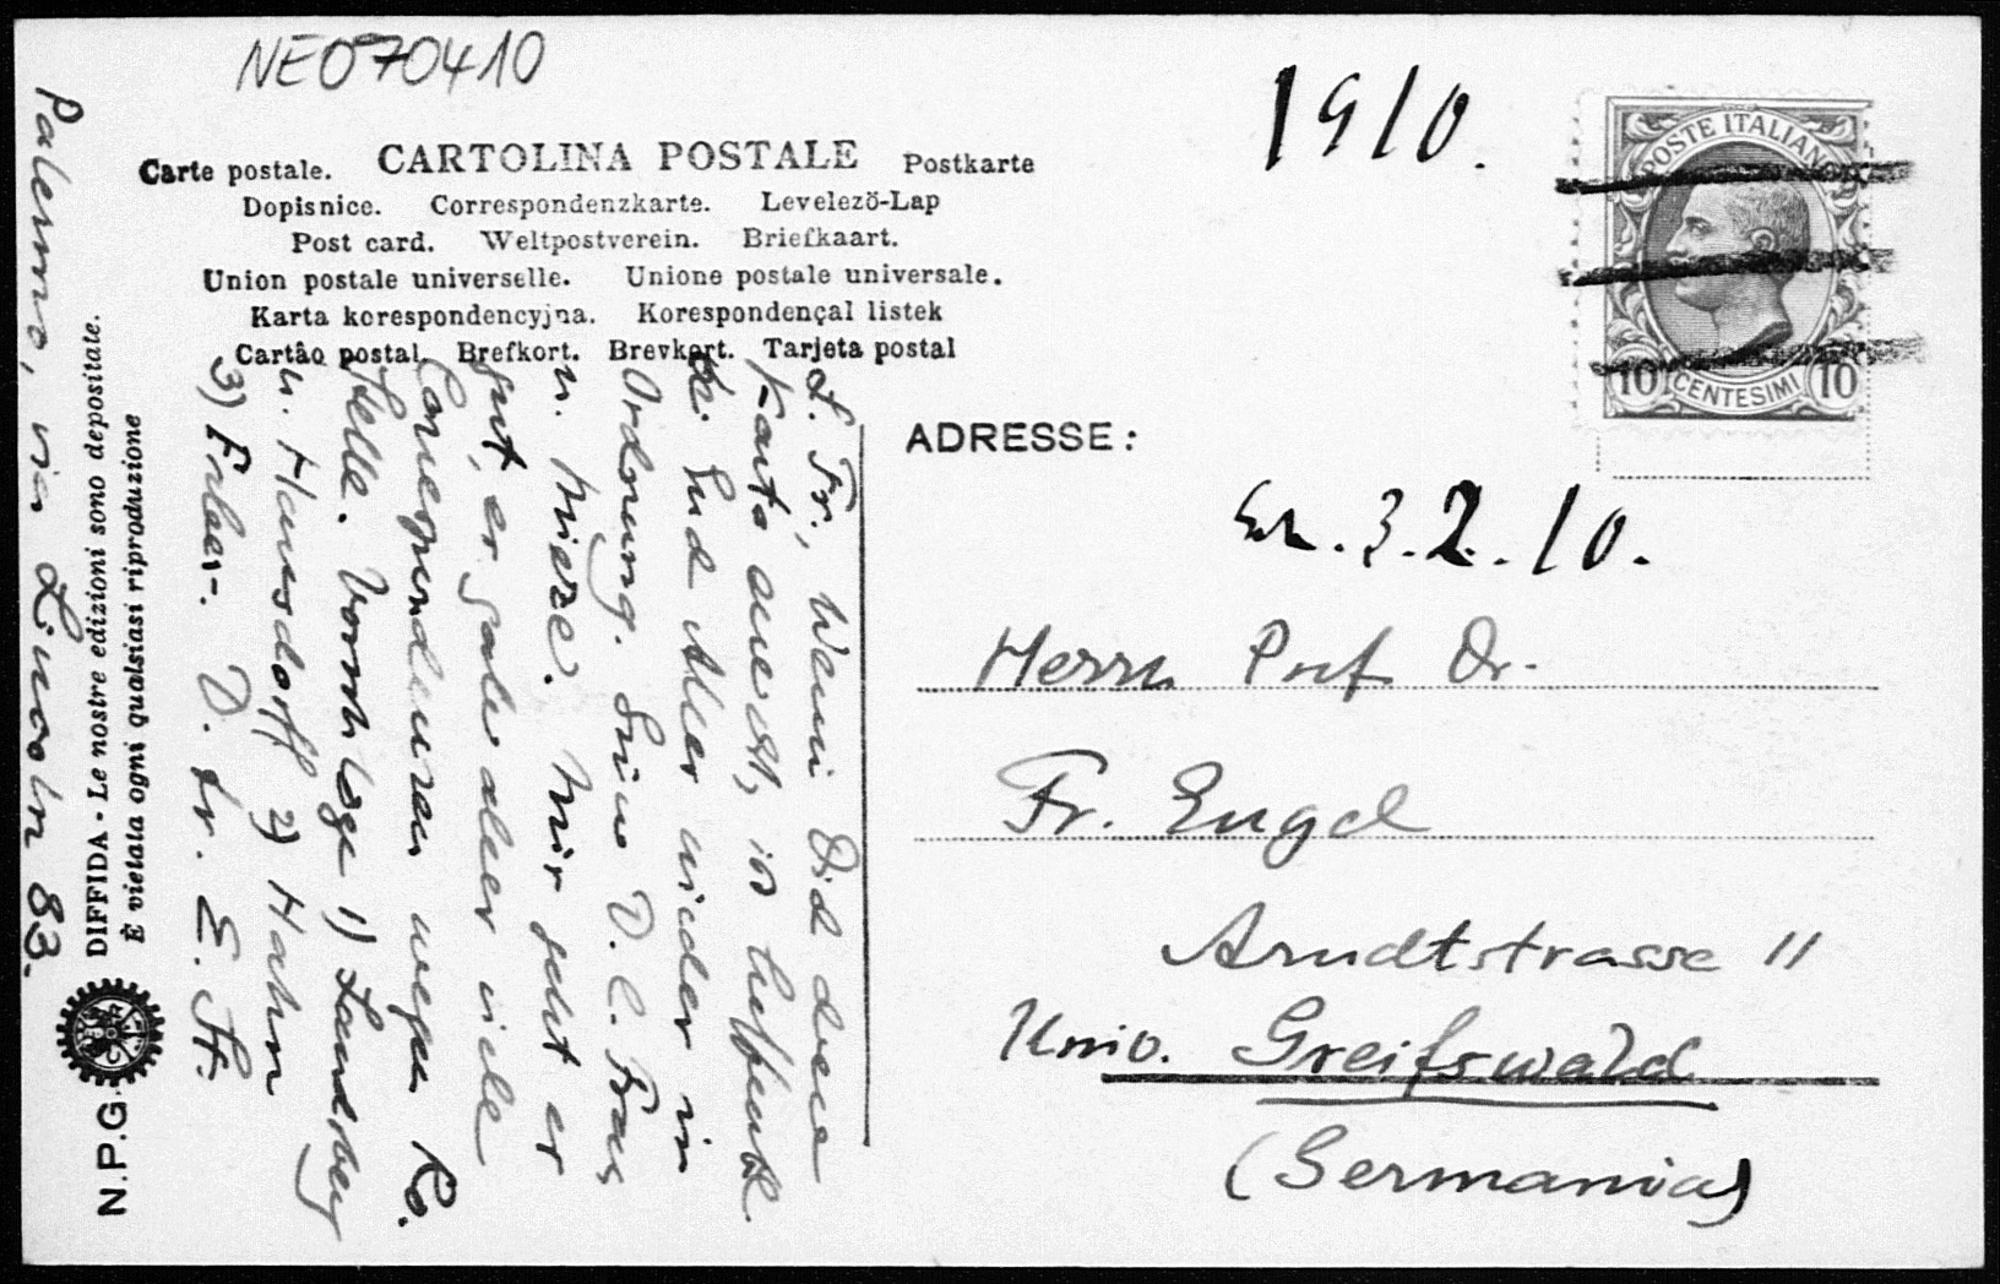 NE070410
1910.
Carte postale. CARTOLINA POSTALE Postkarte
Dopisnice. Correspondenzkarte. Levelezö-Lap
Post card. Weltpostverein. Briefkaart.
Union postale universelle. Unione postale universale.
Karta korespondencyjna. Korespondençal listek
Cartão postal. Brefkort. Brevkort. Tarjeta postal
POSTE ITALIANE
10 CENTESIMI 10
ADRESSE:
3.2.10.
Herrn Prof Dr.
Fr. Engel
Arndtstrasse 11
Univ. Greifswald
(Germania)
L. Fr., Wenn Did diese
Karte
Sind Aller wieder in
Ordnung.
u. Mieze. Mir geht er
gut, er gabe aber viele
Conferenzen wegen
Stelle. Vorschläge 1) Landsberg
u. Hausdorff 2) Hahn
3) Faber. D. tr. E. St.
Palermo, via Lincoln 83.
DIFFIDA - Le nostre edizioni sono depositate.
È vietata ogni qualsiasi riproduzione
N.P.G.